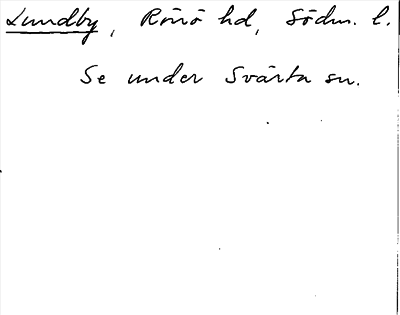 Lundby, Rönö hd, Södm. l.
Se under Svärta sn.